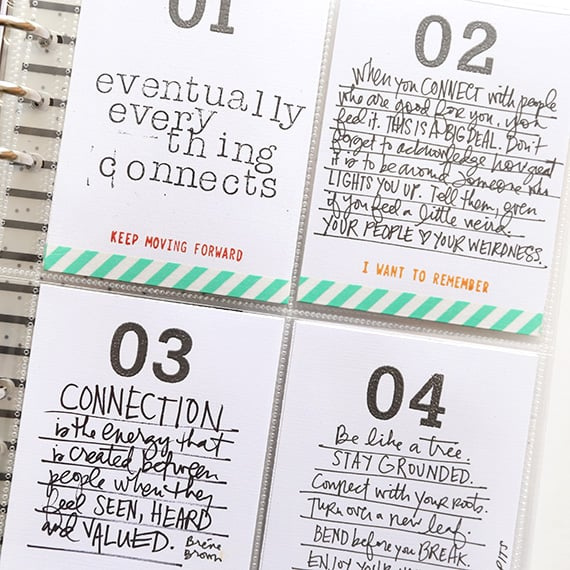 01
eventually
every
thing
connects
KEEP MOVING FORWARD
02
When you CONNECT with people
who are good for you, you
feel it. THIS IS A BIG DEAL. Don't
forget to acknowledge how great
it is to be around someone who
LIGHTS YOU UP. Tell them, even
if you feel a little weird.
YOUR PEOPLE ♡ YOUR WEIRDNESS.
I WANT TO REMEMBER
03
CONNECTION
is the energy that
is created between
people when they
feel SEEN, HEARD
and VALUED.
Brené
Brown
04
Be like a tree.
STAY GROUNDED.
Connect with your roots.
Turn over a new leaf.
BEND before you BREAK.
ENJOY YOUR